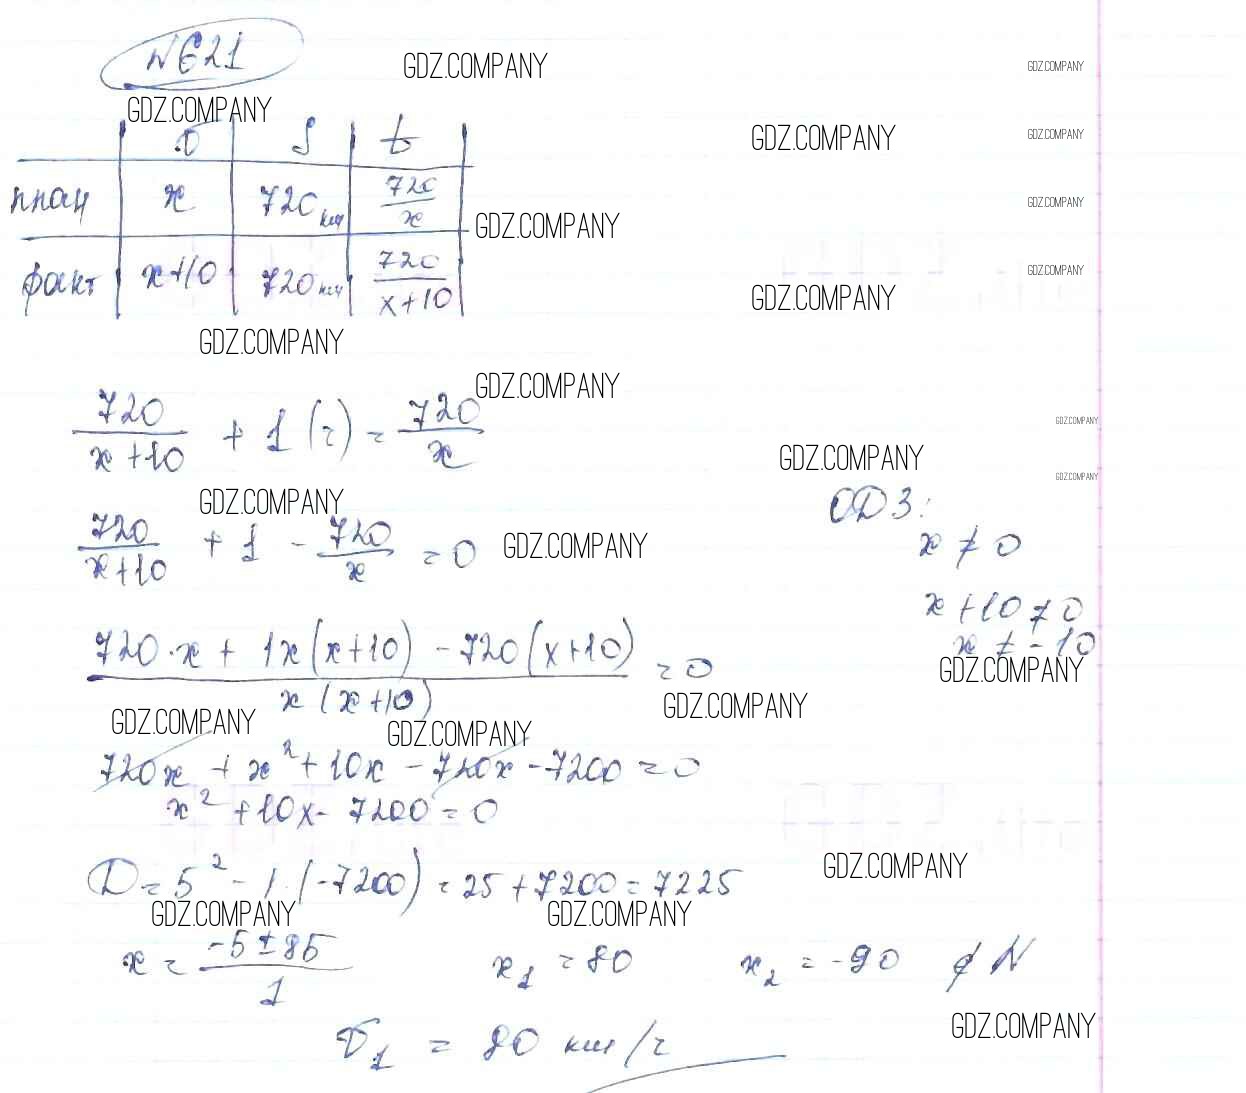 N621
GDZ.COMPANY GDZ.COMPANY
GDZ.COMPANY
GDZ.COMPANY GDZ.COMPANY
v S t
план x 720 км 720/x
GDZ.COMPANY
GDZ.COMPANY
факт x+10 720 км 720/(x+10)
GDZ.COMPANY
GDZ.COMPANY
GDZ.COMPANY
GDZ.COMPANY
720/(x+10) + 1 (ч) = 720/x
GDZ.COMPANY
GDZ.COMPANY
GDZ.COMPANY
GDZ.COMPANY
ОДЗ:
720/(x+10) + 1 - 720/x = 0
GDZ.COMPANY
x ≠ 0
x+10 ≠ 0
x ≠ -10
GDZ.COMPANY
(720·x + 1x(x+10) - 720(x+10))/(x(x+10)) = 0
GDZ.COMPANY
GDZ.COMPANY GDZ.COMPANY
720x + x² + 10x - 720x - 7200 = 0
x² + 10x - 7200 = 0
GDZ.COMPANY
D = 5² - 1·(-7200) = 25 + 7200 = 7225
GDZ.COMPANY GDZ.COMPANY
x = (-5 ± 85)/1 x₁ = 80 x₂ = -90 ∉ N
GDZ.COMPANY
v₁ = 80 км/ч